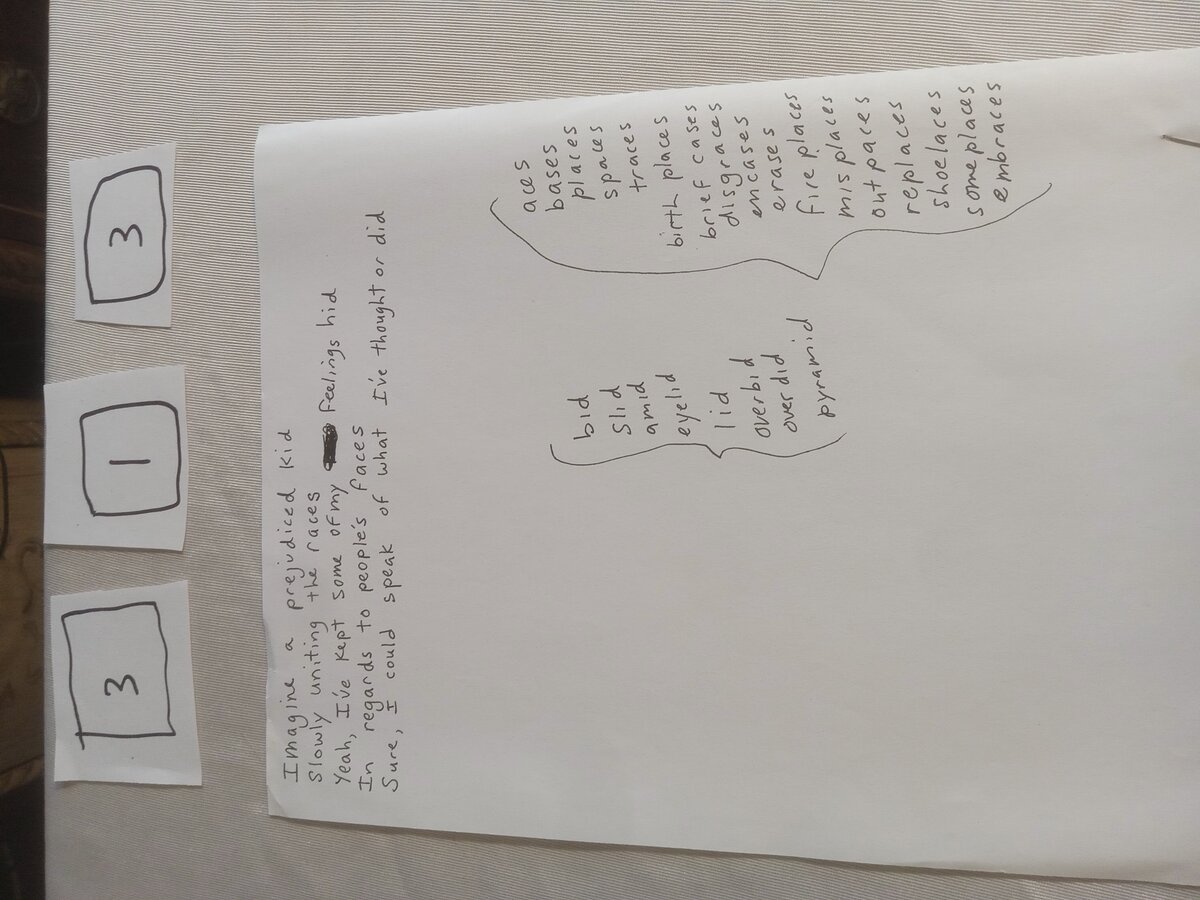 3
1
3
Imagine a prejudiced kid
Slowly uniting the races
Yeah, I've kept some of my feelings hid
In regards to people's faces
Sure, I could speak of what I've thought or did
bid
slid
amid
eyelid
lid
overbid
overdid
pyramid
aces
bases
places
spaces
traces
birth places
brief cases
disgraces
encases
erases
fire places
mis places
out paces
replaces
shoelaces
someplaces
embraces